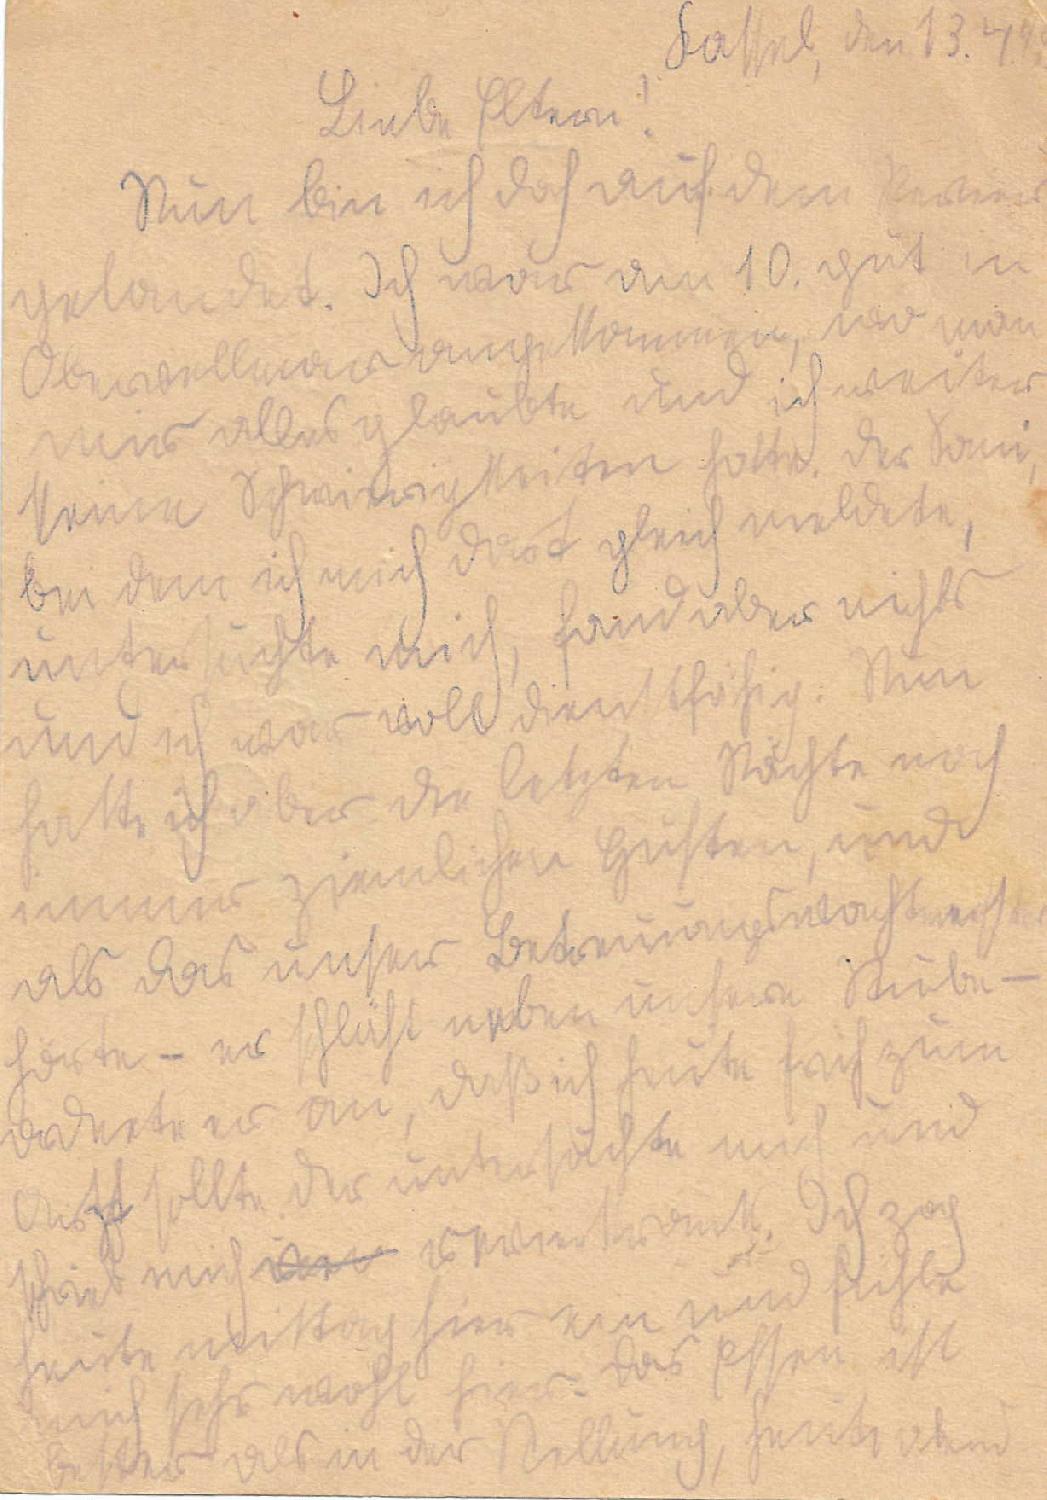 Kassel, den 13. 4.
Liebe Eltern!
Nun bin ich doch auf dem Revier
gelandet. Ich war am 10. gut in
Obervellmar angekommen, wo man
mir alles glaubte und ich weiter
keine Schwierigkeiten hatte. Der Sani,
bei dem ich mich dort gleich meldete,
untersuchte mich, fand aber nichts
und ich war voll dienstfähig. Nun
hatte ich aber die letzten Nächte noch
immer ziemlichen Husten, und
als das unser Betreuungswachtmeister
hörte – er schläft neben unsere Stube –
ordnete er an, daß ich heute früh zum
Arzt sollte. Der untersuchte mich und
schrieb mich revierkrank. Ich zog
heute mittag hier ein und fühle
mich sehr wohl hier. Das Essen ist
besser als in der Stellung, heute abend